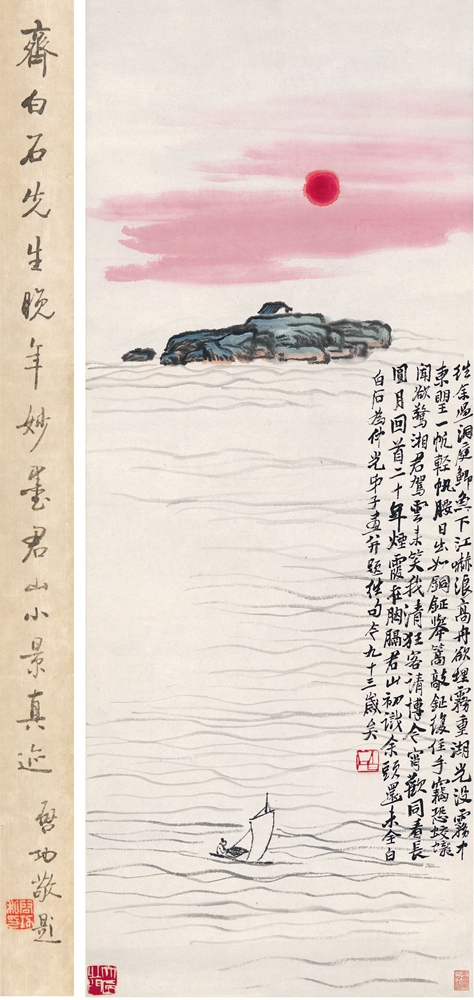 往余過洞庭鯽魚下江嚇浪高舟欲埋霧重湖光没霧中
東望一帆輕帆腰日出如銅鉦舉篙敲鉦復住手竊恐蛟
聞欲驚湘君駕雲來笑我清狂客請博今宵歡同看長
圓月回首二十年煙霞在胸膈君山初識余頭還未全白
白石為仲光弟子畫并題往句今九十三歲矣
齊白石先生晚年妙墨君山小景真迹
啓功敬題